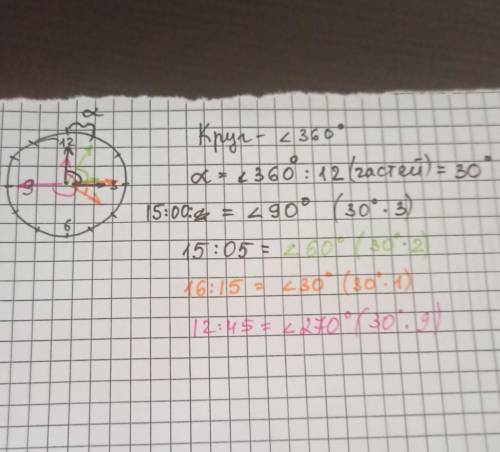 α
12
3
9
6
Круг - ∠360°
α = ∠360° : 12 (частей) = 30°
15:00: = ∠90° (30° · 3)
15:05 = ∠60° (30° · 2)
16:15 = ∠30° (30° · 1)
12:45 = ∠270° (30° · 9)